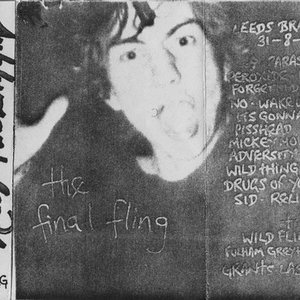 the
final fling
LEEDS BRA
31-8-
PARAS
PEROXIDE
FORGET
NO. WAKE
ITS GONNA
PISSHEAD
MICKEY MO
ADVERSITY
WILD THING
DRUGS OF
SID. RELI
WILD FLI
FULHAM GREY
GRANTS LA
G